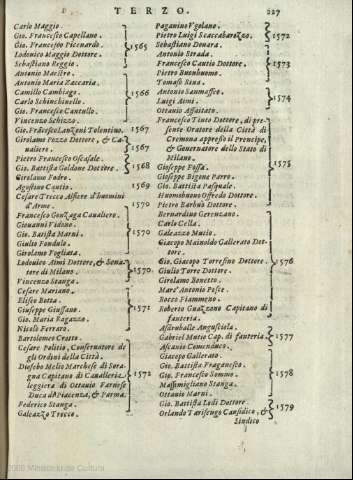 TERZO. 227
Carlo Maggio
Gio. Francesco Capellano.
Gio. Francesco Piccenardo.
1565
Lodovico Maggio Dottore.
Sebastiano Reggio.
Antonio Mainero.
Antonio Maria Zaccaria.
Camillo Cambiago.
1566
Carlo Schinchinello.
Gio. Francesco Cantullo.
Vincenzo Schizzo.
Gio. Frācesco Lanzoni Tolentino. 1567
Girolamo Pozzo Dottore, & Ca
ualiero.
1567
Pietro Francesco Oscasale.
Gio. Battista Goldone Dottore.
1568
Girolamo Fodro.
Agostino Cautio. 1569
Cesare Trecco Alfiere d'huomini
d'Arme.
1570
Francesco Gonzaga Caualiero.
Giouanni Vidono.
Gio. Batista Maruì.
1570
Giulio Fondulo.
Girolamo Fogliata.
Lodouico Aimi Dottore, & Sena
tore di Milano.
1570
Vincenzo Stanga.
Cesare Mariano.
Eliseo Botta.
Giuseppe Giussano.
1571
Gio. Maria Ragazzo.
Nicolò Ferraro.
Bartolomeo Cratto.
Cesare Politio, Conseruatore de
gli Ordini della Città.
Diofebo Melio Marchese di Sora
gna Capitano di Caualleria
1572
leggiera di Ottauio Farnese
Duca di Piacenza, & Parma.
Federico Stanga.
Galeazzo Trecco.
Paganino Vgolano.
Pietro Luigi Scaccabarozzo.
1572
Sebastiano Donora.
Antonio Strada.
Francesco Cautio Dottore.
1573
Pietro Buonhuomo.
Tomaso Sina.
Antonio Sanmaffeo.
Luigi Aimi.
1574
Ottauio Affaitato.
Francesco Tinto Dottore, di pre
sente Oratore della Città di
Cremona appresso il Prencipe,
& Gouernatore dello Stato di
Milano.
1575
Gioseppe Fossa.
Gioseppe Bigone Parro.
Gio. Battista Pasquale.
Huomobuono Offredo Dottore.
Pietro Barbuò Dottore.
Bernardino Gerenzano.
Carlo Cella.
Galeazzo Mutio.
Giacopo Mainoldo Gallerato Dot-
tore.
Gio. Giacopo Torresino Dottore.
1576
Giulio Torre Dottore.
Girolamo Bonetto.
Marc' Antonio Pesce.
Rocco Fiammeno.
Roberto Guazzono Capitano di
fanteria.
Astruballe Anguisciola.
Gabriel Mutio Cap. di fanteria.
1577
Ascanio Comenduco.
Giacopo Gallerato.
Gio. Battista Fraganesco.
Gio. Francesco Sommo.
1578
Massimigliano Stanga.
Ottauio Maruì.
Gio. Battista Lodi Dottore.
1579
Orlando Tarisengo Causidico, &
Sindico
2008 Ministerio de Cultura